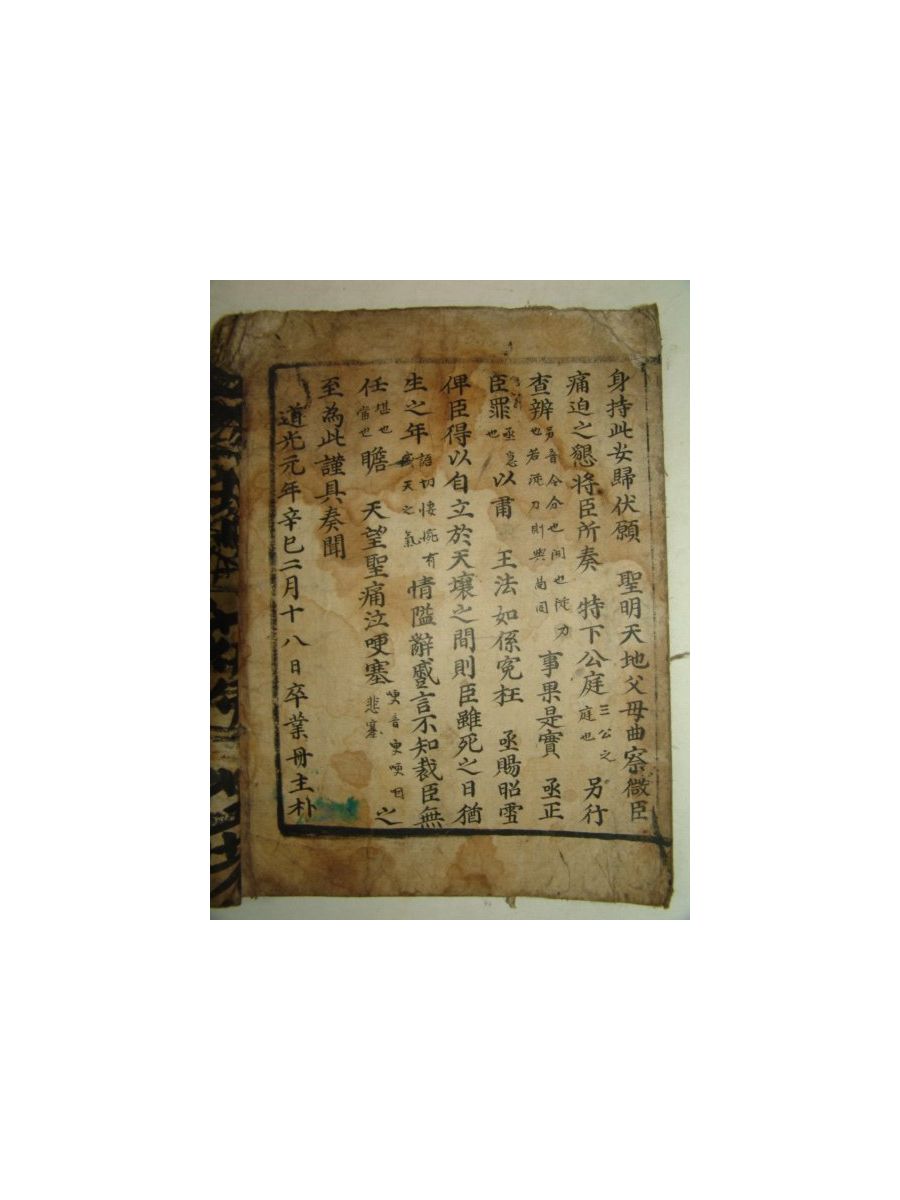 身持此安歸伏願 聖明天地父母曲察微臣
痛迫之懇將臣所奏 特下公庭三公之庭也 另行
查辨另音令分也間也從刀也若從力則與另同 事果是實 亟正
臣罪亟急也 以肅 王法如係冤枉 亟賜昭雪
俾臣得以自立於天壤之間則臣雖死之日猶
生之年語切悽惋有天之氣 情隘辭蹙言不知裁臣無
任堪也當也 瞻 天望聖痛泣哽塞哽音更哽咽悲塞 之
至為此謹具奏聞
道光元年辛巳二月十八日卒業冊主朴